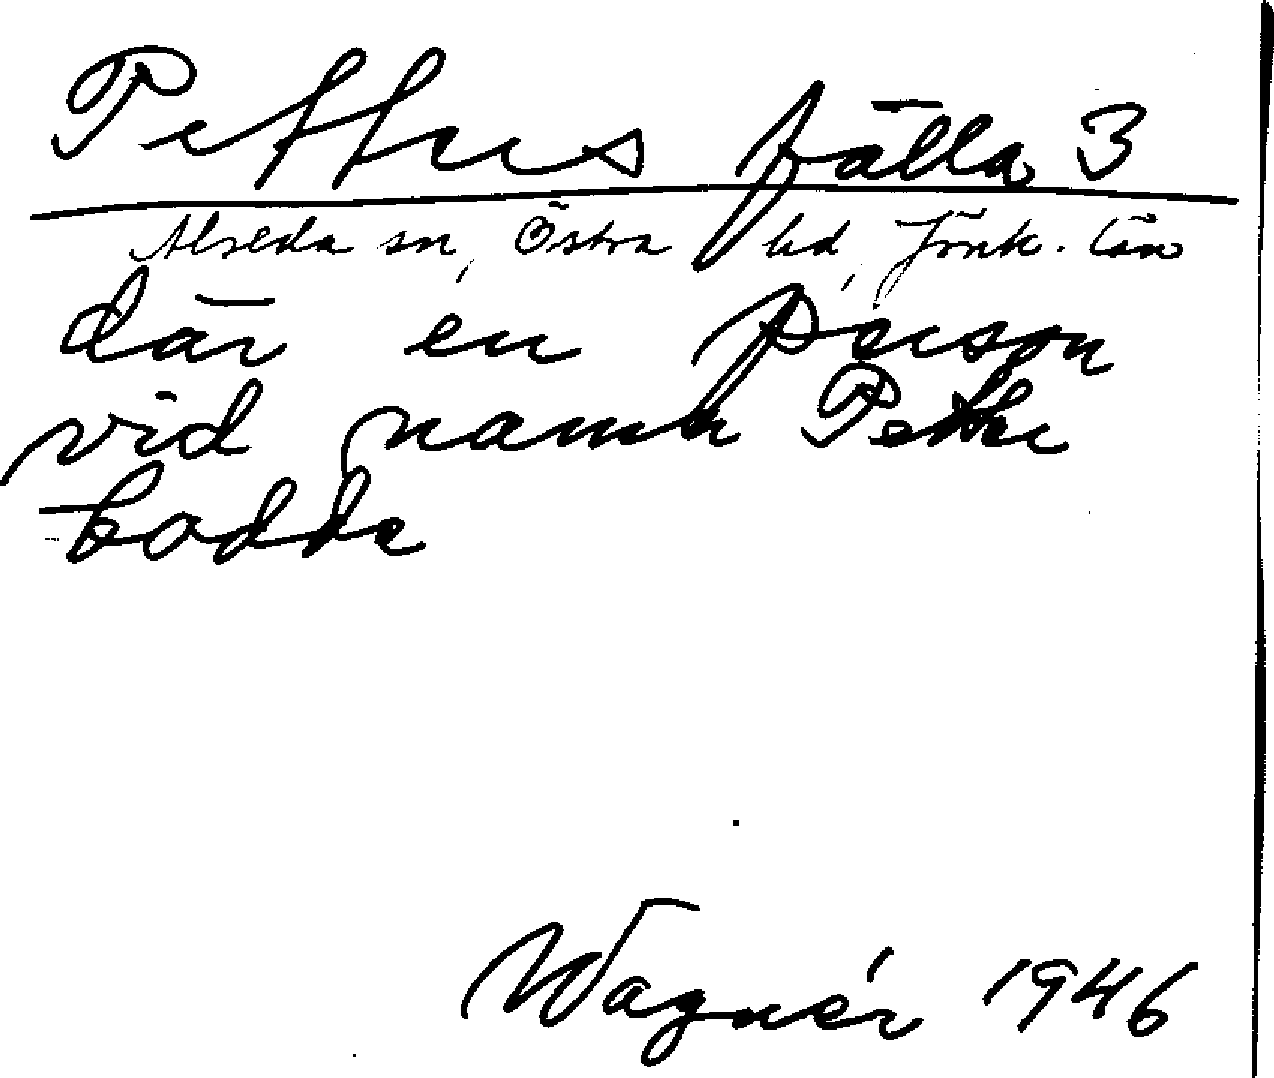 Pettes fälla 3
Alseda sn, Östra hd, Jönk. län
där en person
vid namn Pette
bodde
Wagnér 1946